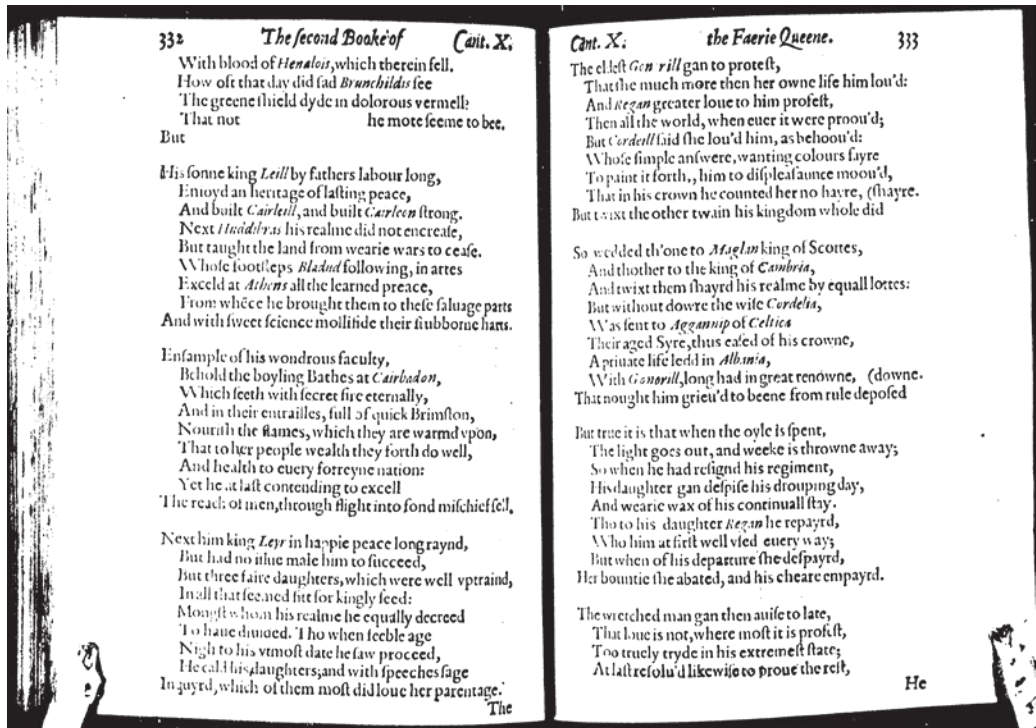 332 The second Booke of Cant. X.
With blood of Henalois, which therein fell.
How oft that day did sad Brunchildis see
The greene shield dyde in dolorous vermell?
That not he mote seeme to bee.
But
His sonne king Leill by fathers labour long,
Enioyd an heritage of lasting peace,
And built Cairleill, and built Cairleon strong.
Next Huddibras his realme did not encrease,
But taught the land from wearie wars to cease.
Whose footsteps Bladud following, in artes
Exceld at Athens all the learned preace,
From whēce he brought them to these saluage parts
And with sweet science mollifide their stubborne harts.
Ensample of his wondrous faculty,
Behold the boyling Bathes at Cairbadon,
Which seeth with secret fire eternally,
And in their entrailles, full of quick Brimston,
Nourish the flames, which they are warmd vpon,
That to her people wealth they forth do well,
And health to euery forreyne nation:
Yet he at last contending to excell
The reach of men, through flight into fond mischief fell.
Next him king Leyr in happie peace long raynd,
But had no issue male him to succeed,
But three faire daughters, which were well vptraind,
In all that seemed fitt for kingly seed:
Mongst whom his realme he equally decreed
To haue diuided. Tho when feeble age
Nigh to his vtmost date he saw proceed,
He cald his daughters; and with speeches sage
Inquyrd, which of them most did loue her parentage.
The
Cant. X. the Faerie Queene. 333
The eldest Gonorill gan to protest,
That she much more then her owne life him lou'd:
And Regan greater loue to him profest,
Then all the world, when euer it were proou'd;
But Cordeill said she lou'd him, as behoou'd:
Whose simple answere, wanting colours fayre
To paint it forth,, him to displeasaunce moou'd,
That in his crown he counted her no hayre, (shayre.
But twixt the other twain his kingdom whole did
So wedded th'one to Maglan king of Scottes,
And thother to the king of Cambria,
And twixt them shayrd his realme by equall lottes:
But without dowre the wise Cordelia,
Was sent to Aggannip of Celtica
Their aged Syre, thus eased of his crowne,
A priuate life ledd in Albania,
With Gonorill, long had in great renowne, (downe.
That nought him grieu'd to beene from rule deposed
But true it is that when the oyle is spent,
The light goes out, and weeke is throwne away;
So when he had resignd his regiment,
His daughter gan despise his drouping day,
And wearie wax of his continuall stay.
Tho to his daughter Regan he repayrd,
Who him at first well vsed euery way;
But when of his departure she despayrd,
Her bountie she abated, and his cheare empayrd.
The wretched man gan then auise to late,
That loue is not, where most it is profest,
Too truely tryde in his extremest state;
At last resolu'd likewise to proue the rest,
He